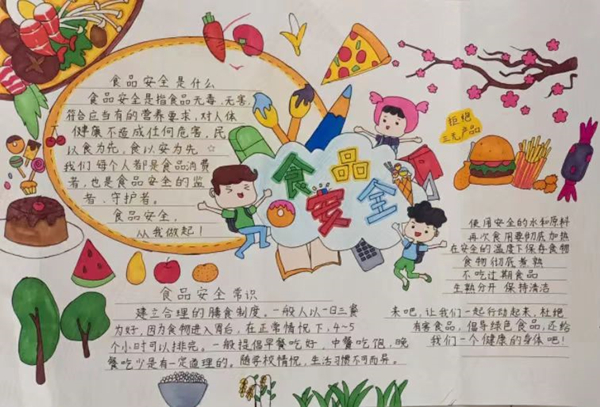 食品安全是什么
食品安全是指食品无毒、无害,
符合应当有的营养要求,对人体
健康不造成任何危害,民
以食为先,食以安为先。
我们每个人都是食品消费
者,也是食品安全的监
者、守护者。
食品安全,
从我做起!
食品安全
拒绝
三无产品
食品安全常识
建立合理的膳食制度。一般人以一日三餐
为好,因为食物进入胃后,在正常情况下,4~5
个小时可以排完。一般提倡早餐吃好,中餐吃饱,晚
餐吃少是有一定道理的。随各校情况,生活习惯不可而异。
使用安全的水和原料
再次食用要彻底加热
在安全的温度下保存食物
食物彻底煮熟
不吃过期食品
生熟分开 保持清洁
来吧,让我们一起行动起来,杜绝
有害食品,倡导绿色食品,还给
我们一个健康的身体吧!